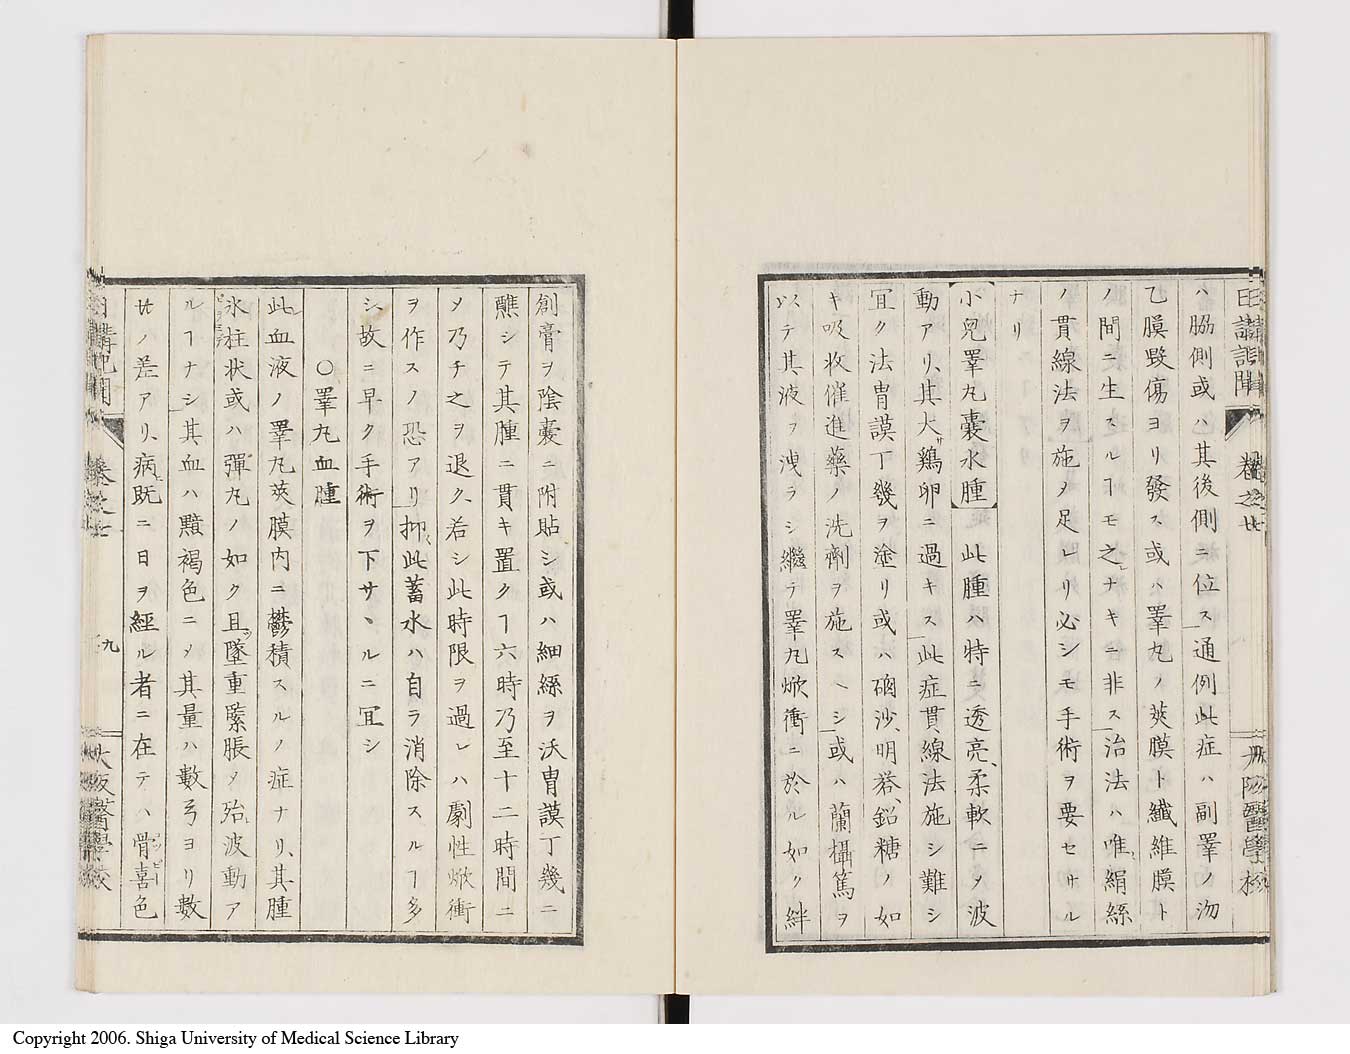 日講記聞
卷之廿
大阪醫學校
ハ脇側或ハ其後側ニ位ス通例此症ハ副睪ノ沕
乙膜毀傷ヨリ發ス或ハ睪丸ノ莢膜ト纖維膜ト
ノ間ニ生スルヿモ之レナキニ非ス治法ハ唯絹絲
ノ貫線法ヲ施メ足レリ必シモ手術ヲ要セサル
ナリ
小兒睪丸囊水腫 此腫ハ特ニ透亮、柔軟ニメ波
動アリ、其大サ鷄卵ニ過キス此症貫線法施シ難シ
宜ク法胄謨丁幾ヲ塗リ或ハ磠沙、明礬、鉛糖ノ如
キ吸收催進藥ノ洗劑ヲ施スヘシ或ハ蘭榅篤ヲ
以テ其液ヲ洩ラシ繼テ睪丸焮衝ニ於ル如ク絆
創膏ヲ陰囊ニ附貼シ或ハ細絲ヲ沃胄謨丁幾ニ
蘸シテ其腫ニ貫キ置クヿ六時乃至十二時間ニ
メ乃チ之ヲ退ク、若シ此時限ヲ過レハ劇性焮衝
ヲ作スノ恐アリ抑此蓄水ハ自ラ消除スルヿ多
シ故ニ早ク手術ヲ下サヽルニ宜シ
○睪丸血腫
此レ血液ノ睪丸莢膜内ニ鬱積スルノ症ナリ、其腫
氷柱状或ハ彈丸ノ如ク且ツ墜重緊脹メ殆波動ア
ルヿナシ其血ハ黯褐色ニメ其量ハ數弓ヨリ數
廿ノ差アリ、病既ニ日ヲ經ル者ニ在テハ骨喜色
日講記聞
卷之廿
九
大阪醫學校
Copyright 2006. Shiga University of Medical Science Library